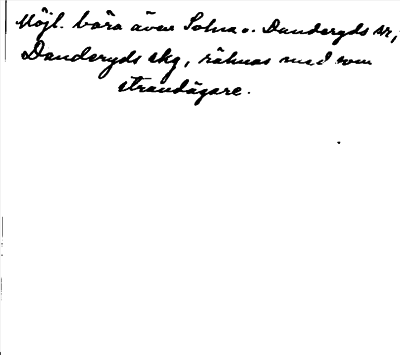 Möjl. böra även Solna o. Danderyds sn,
Danderyds skg, räknas med som
strandägare.